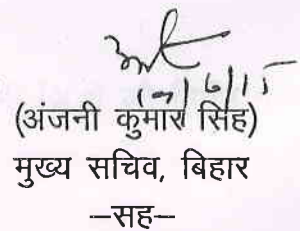 (अंजनी कुमार सिंह)
मुख्य सचिव, बिहार
–सह–